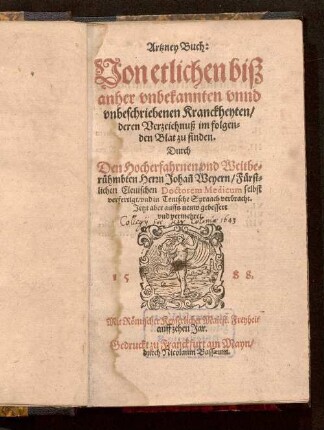 Artzney Buch:
Von etlichen biß
anher vnbekannten vnnd
vnbeschriebenen Kranckheyten/
deren Verzeichnuß im folgen-
den Blat zu finden.
Durch
Den Hocherfahrnen vnd Weitbe-
rühmbten Herrn Johañ Weyern/ Fürst-
lichen Clevischen Doctorem Medicum selbst
verfertigt/ vnd in Teutsche Sprach verbracht.
Jetzt aber auffs neuw gebessert
vnd vermehret.
1643
1588.
Mit Römischer Keyserlicher Maiest. Freyheit
auff zehen Jar.
Gedruckt zu Franckfurt am Mayn/
durch Nicolaum Bassæum.